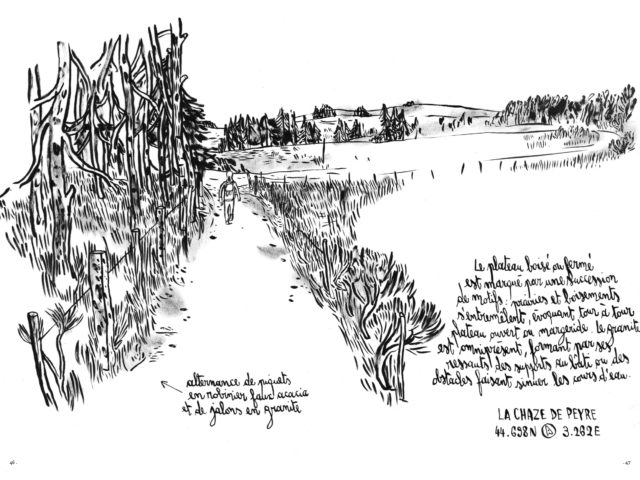 Le plateau boisé ou fermé
est marqué par une succession
de motifs : prairies et boisements
s'entremêlent, évoquant tour à tour
plateau ouvert ou margeride. le granite
est omniprésent, formant par ses
ressauts des supports au bâti ou des
obstacles faisant sinuer les cours d'eau.
alternance de piquets
en robinier faux acacia
et de jalons en granite
LA CHAZE DE PEYRE
44.698N A 3.262E
46
47